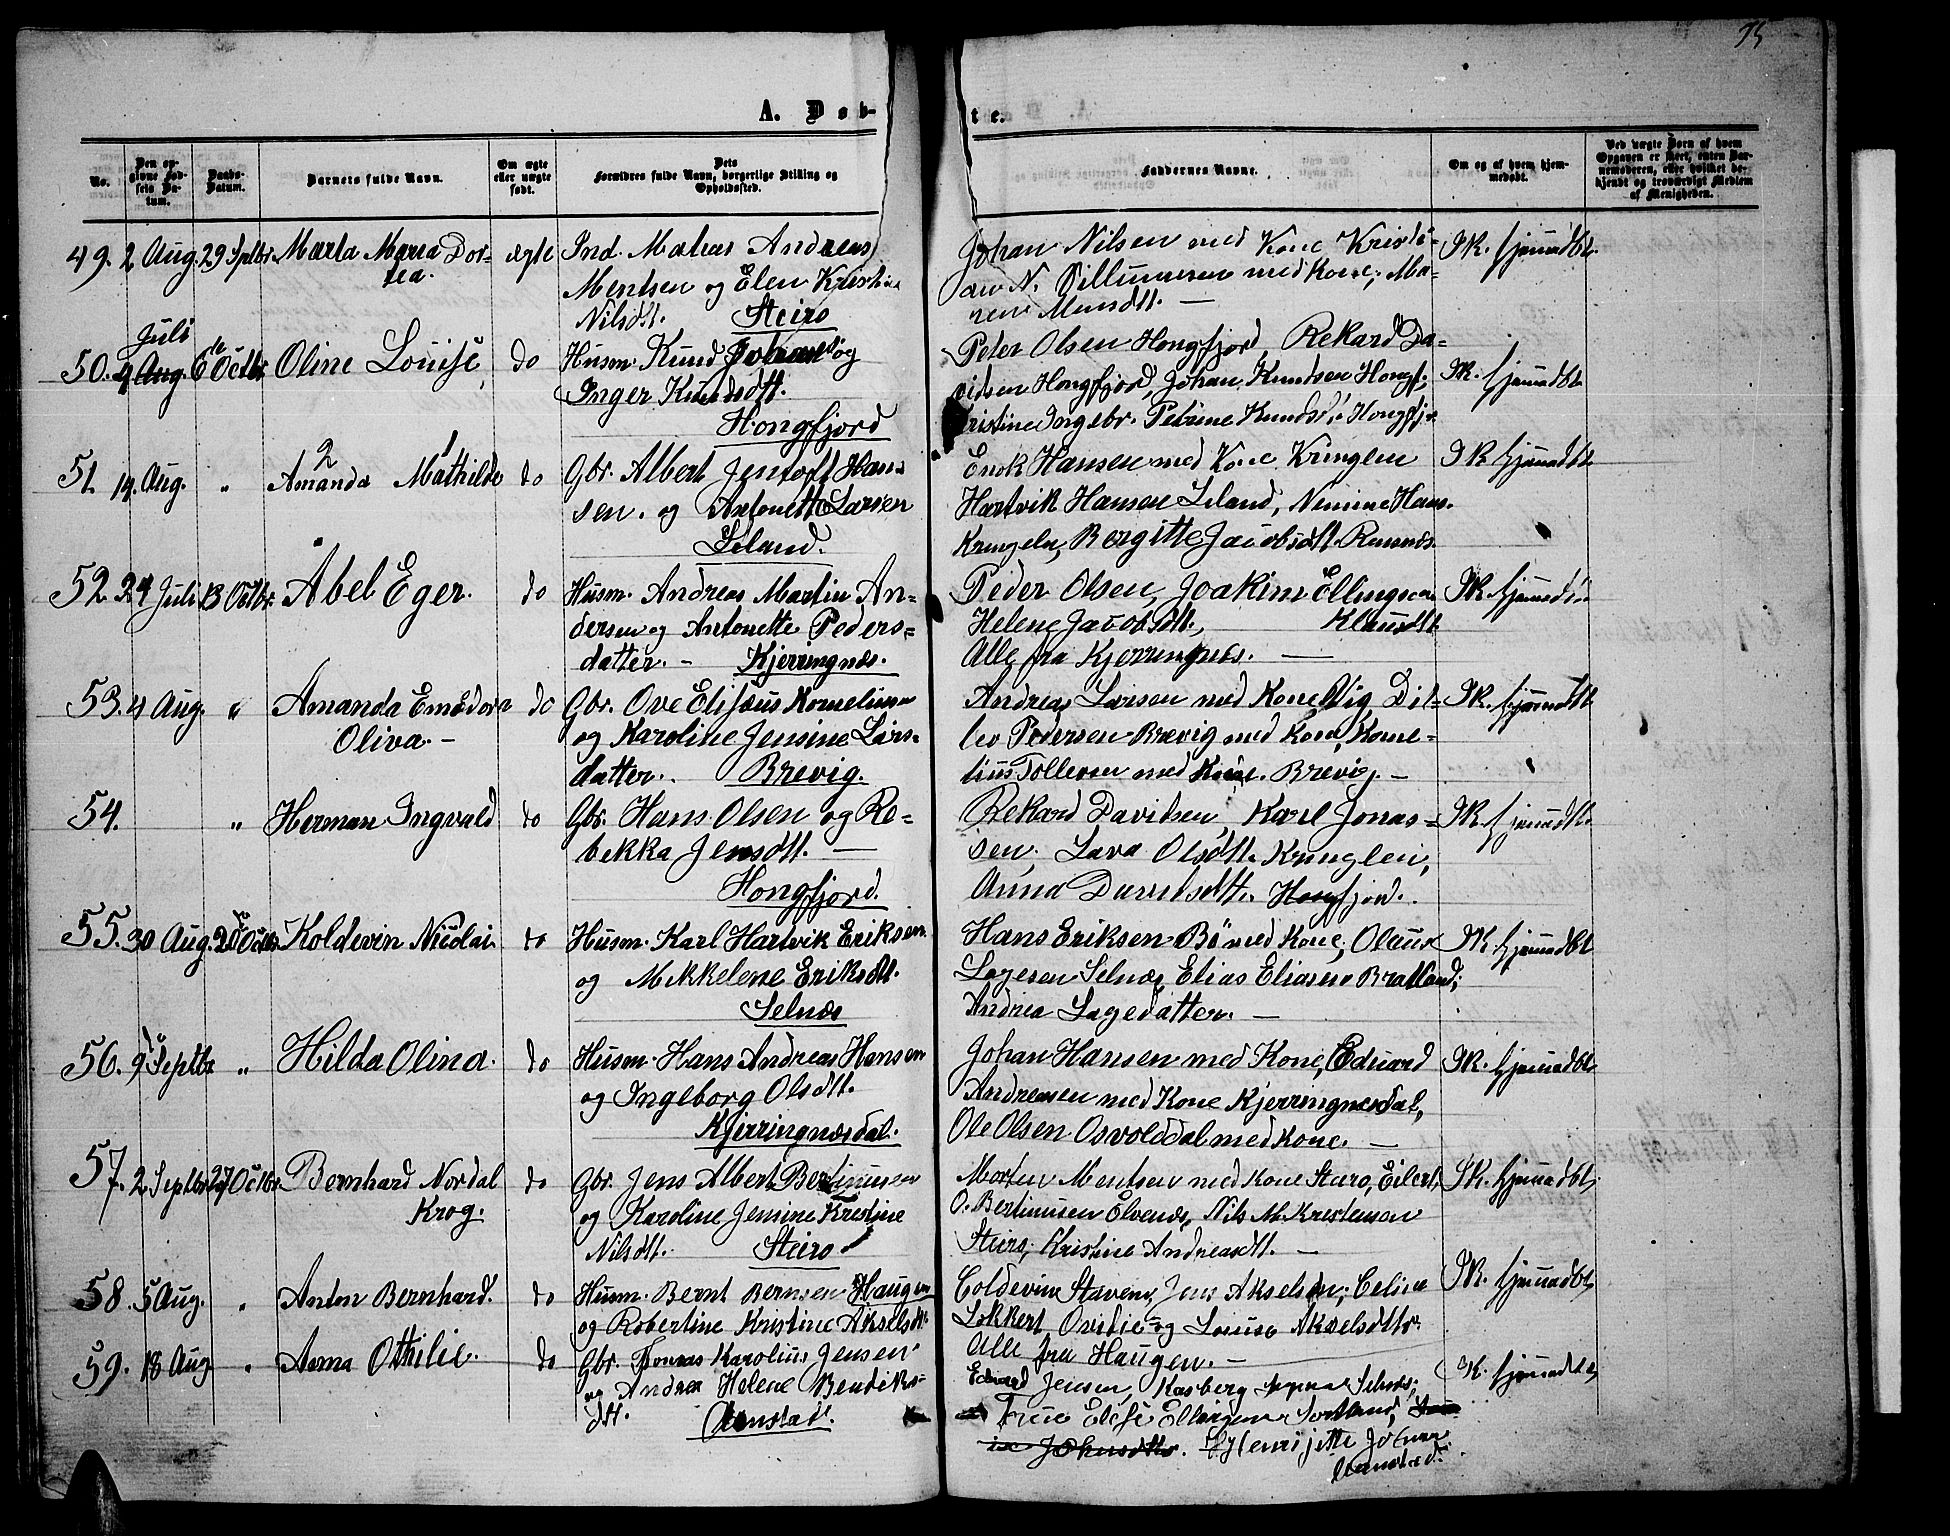 95
A. Døb-
te.
No.
Den op-
givne Fød-
sels Da-
tum.
Daabs-
Datum.
Barnets fulde Navn.
Om ægte
eller uægte
født.
Dets
Forældres fulde Navn, borgerlige Stilling og
Opholdssted.
Faddernes Navne.
Om og af hvem hjem-
medøbt.
Ved uægte Børn af hvem
Opgaven er skeet, enten Bar-
nemoderen, eller hvilket be-
kjendt og troværdigt Medlem
af Menigheden.
49. 2 Aug. 29 Septbr. Marta Maria Dor- ægte Ind. Matias Andreas
tea. Mentsen og Elen Kristine
Nilsdt. Steiro
Johan Nilsen med Kone, Kristi-
an N. med Kone, Ma-
ren Mundt. —
IK. hjemmedbt.
Juli
50. 4 Aug. 6te Octbr. Oline Louise do Husm. Knud og
Inger Knudsdt.
Hongfjord
Peter Olsen Hongfjord, Rekard Da-
vidsen Hongfjord, Johan Knudsen Hongfj.
Kristine Ingebr. Petrine Knudsd. Hongfj.
IK. hjemmedbt.
51. 14. Aug. " Amanda Mathilde do Gbr. Albert Jentoft Han-
2 1
sen. og Antonette Larsen
Leland.
Enok Hansen med Kone Kringlen
Hartvik Hansen Leland, Nemine Hans.
Kringeln, Bergitte Jacobsdt. Rensnæs.
IK hjemmedbt.
52. 24 Juli 13 Octbr. Abel Eger. do Husm. Andreas Martin An-
dersen og Antonette Peders-
datter. – Kjerringnæs.
Peder Olsen, Joakim Ellingsen
Helene Jacobsdt., Klausdt.
Alle fra Kjerringnæs. —
IK. hjemmedbt.
53. 4 Aug. " Amanda Emedora do Gbr. Ove Elisæus Kornelius
Oliva. – og Karoline Jensine Lars-
datter. Brevig.
Andreas Larsen med Kone Vig, Dit-
lev Pedersen Brevig med Kone, Korne-
lius Tollevsen med Kone. Brevig. –
IK. hjemmedbt.
54. " Herman Ingvald do Gbr. Hans Olsen og Re-
bekka Jensdt. —
Hongfjord.
Rekard Davidsen, Karl Jonas-
sen, Lava Olsdt. Kringlen,
Anna Davidsdt. Hongfjord.
IK. hjemmedbt.
55. 30 Aug. 20de Octbr. Koldevin Nicolai. do Husm. Karl Hartvik Eriksen
og Mikkelene Eriksdt.
Selnæs
Hans Eriksen Bø med Kone, Olaus
Lagesen Selnæs, Elias Eliasen Bratland,
Andrea Lagedatter. —
IK. hjemmedbt
56. 9de Septbr. " Hilda Olina. do Husm. Hans Andreas Hansen
og Ingeborg Olsdt.
Kjerringnæsdal.
Johan Hansen med Kone, Eduard
Andreasen med Kone Kjerringnæsdal,
Ole Olsen Osvolddal med Kone. —
IK. hjemmedbt
57. 2 Septbr. 27 Octbr. Bernhard Nordal do Gbr. Jens Albert Bertinusen
Krog. og Karoline Jensine Kristine
Nilsdt. Steiro
Morten Mentsen med Kone Steiro, Eilert
O. Bertinusen Elvenæs, Nils M. Kristensen
Steiro, Kristine Andreasdt. —
IK. hjemmedbt.
58. 5 Aug. " Anton Bernhard. do Husm. Bernt Bernsen Haugen
og Robertine Kristine Akselsdt.
Coldevin Stavem, Jens Akselsen, Celine
Lokkert og Louise Akselsdttr.
Alle fra Haugen. —
IK. hjemmedbt.
59. 18 Aug " Anna Othilie. do Gbr. Tomas Karolius Jensen
og Andrea Helene Bendiks-
dt.
Edvard Jensen, Kasberg Selnæs,
Frue Elise Ellingsen Sortland,
Johnsdttr. Henrijette
IK. hjemmedbt.